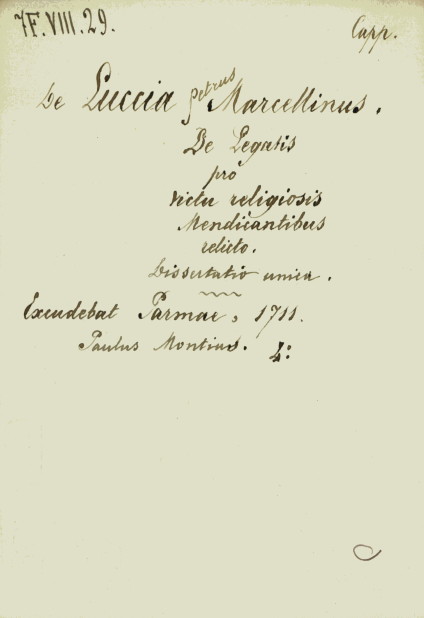 7F.VIII.29.
Capp.
De Luccia Petrus Marcellinus.
De Legatis
pro
victu religiosis
Mendicantibus
relicto.
Dissertatio unica.
Excudebat Parmae, 1711.
Paulus Montius. 4: